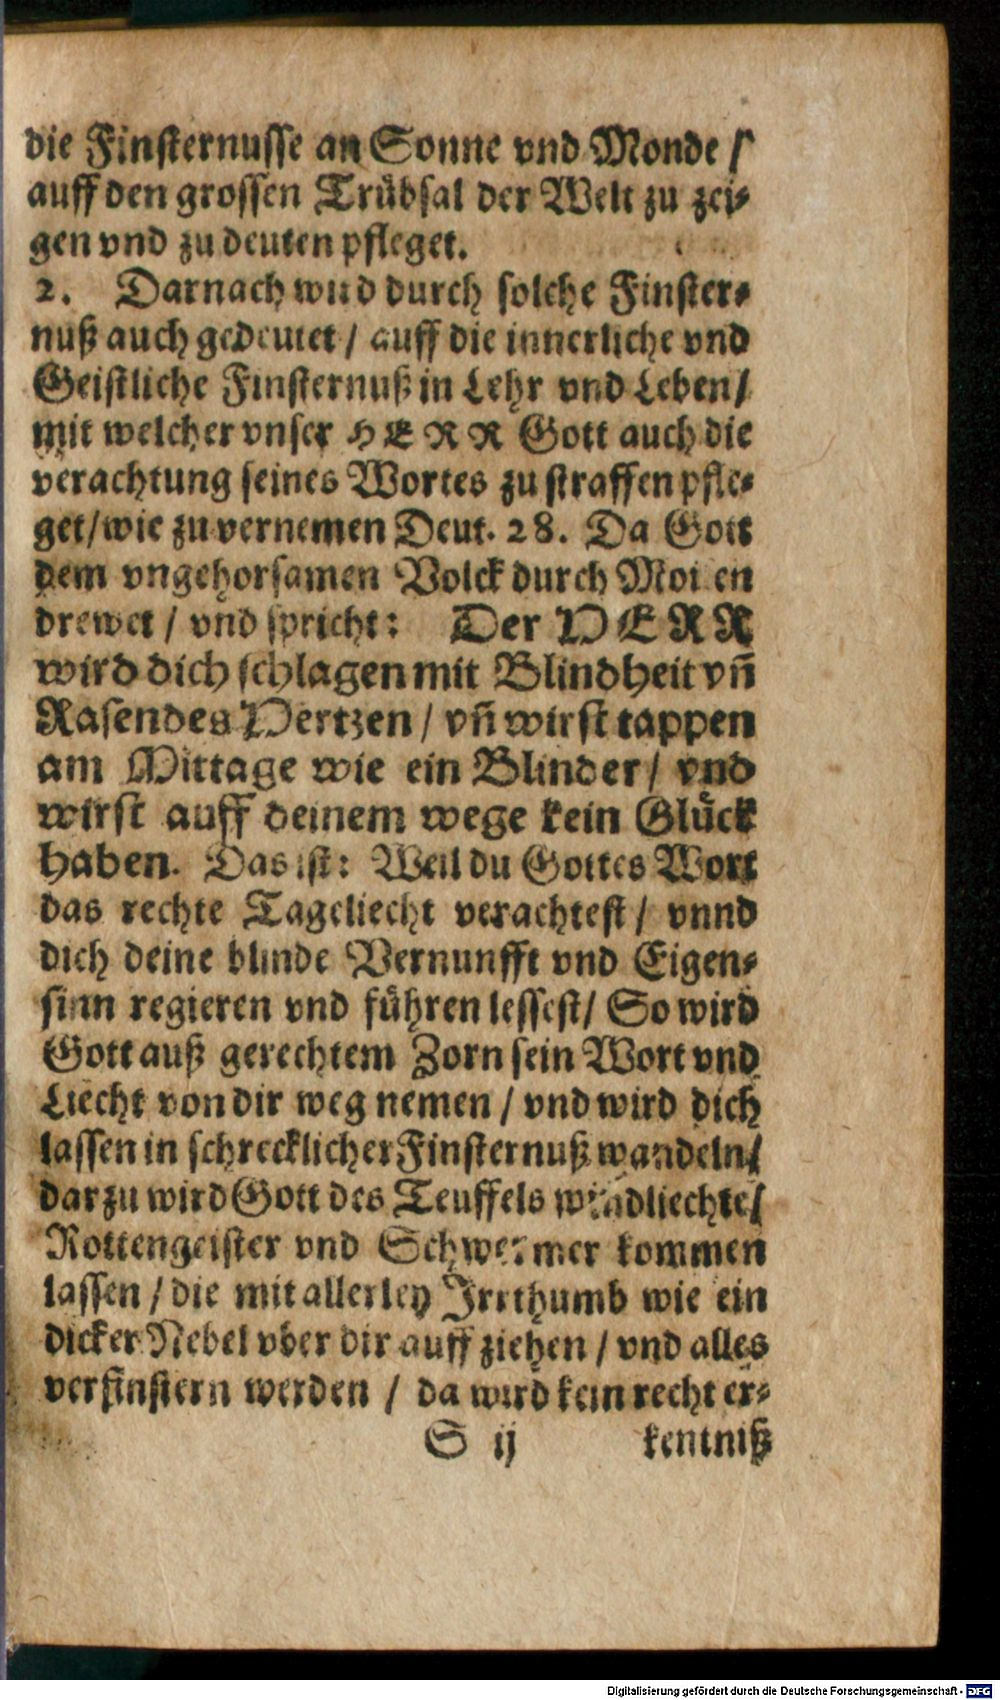 die Finsternusse an Sonne vnd Monde /
auff den grossen Trübsal der Welt zu zei-
gen vnd zu deuten pfleget.
2. Darnach wird durch solche Finster-
nuß auch gedeutet / auff die innerliche vnd
Geistliche Finsternuß in Lehr vnd Leben/
mit welcher vnser HERR Gott auch die
verachtung seines Wortes zu straffen pfle-
get/wie zu vernemen Deut. 28. Da Gott
dem vngehorsamen Volck durch Mosen
drewet / vnd spricht: Der HERR
wird dich schlagen mit Blindheit vñ
Rasendes Hertzen / vñ wirst tappen
am Mittage wie ein Blinder / vnd
wirst auff deinem wege kein Glück
haben. Das ist: Weil du Gottes Wort
das rechte Tageliecht verachtest / vnnd
dich deine blinde Vernunfft vnd Eigen-
sinn regieren vnd führen lessest/ So wird
Gott auß gerechtem Zorn sein Wort vnd
Liecht von dir weg nemen / vnd wird dich
lassen in schrecklicher Finsternuß wandeln/
darzu wird Gott des Teuffels windliechte/
Rottengeister vnd Schwermer kommen
lassen / die mit allerley Irrthumb wie ein
dicker Nebel vber dir auff ziehen / vnd alles
verfinstern werden / da wird kein recht er-
S ij kentniß
Digitalisierung gefördert durch die Deutsche Forschungsgemeinschaft - DFG